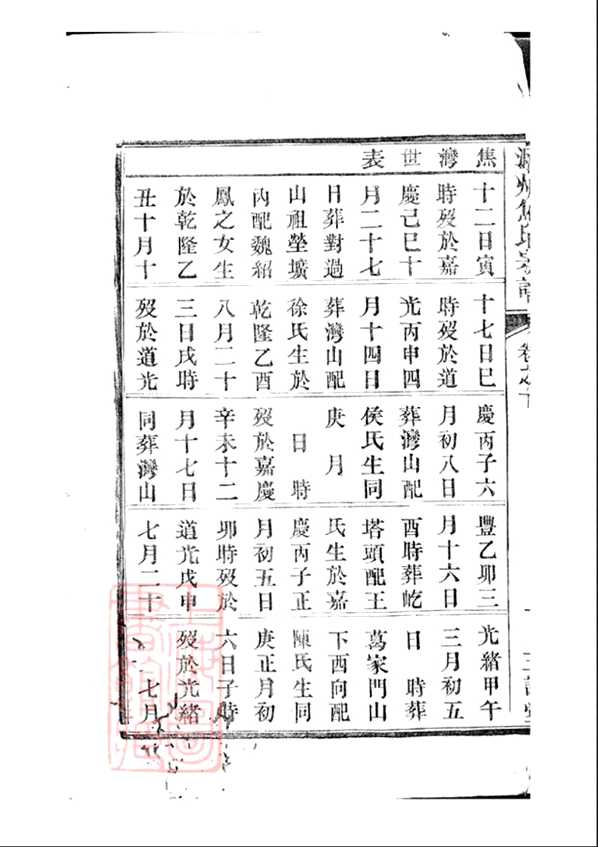 焦氏宗譜
卷之
焦灣世表
十二日寅
時歿於嘉
慶己巳十
月二十七
日葬對過
山祖塋壙
內配魏紹
鳳之女生
於乾隆乙
丑十月十
十七日巳
時歿於道
光丙申四
月十四日
葬灣山配
徐氏生於
乾隆乙酉
八月二十
三日戌時
歿於道光
慶丙子六
月初八日
葬灣山配
侯氏生同
庚 月
日 時
歿於嘉慶
辛未十二
月十七日
同葬灣山
豐乙卯三
月十六日
酉時葬屹
塔頭配王
氏生於嘉
慶丙子正
月初五日
卯時歿於
道光戊申
七月二十
光緒甲午
三月初五
日 時葬
葛家門山
下西向配
陳氏生同
庚正月初
六日子時
歿於光緒
七月